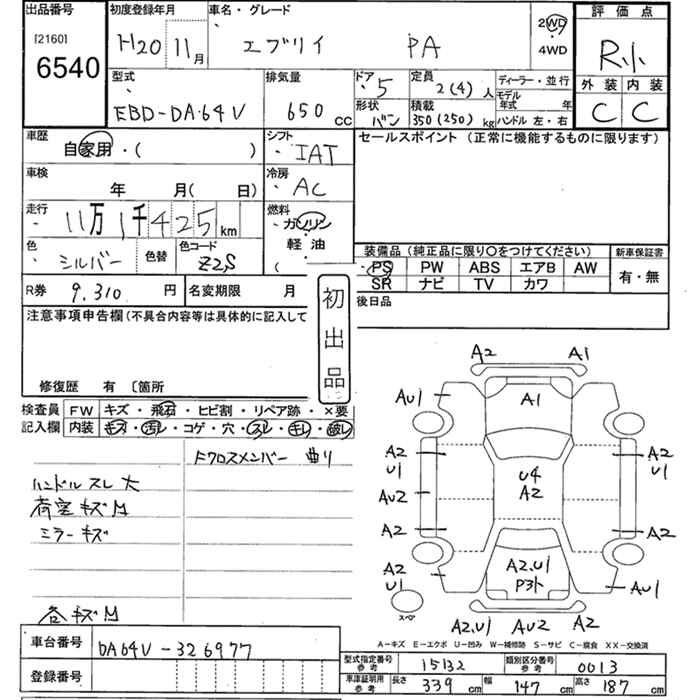 出品番号
[2160]
6540
初度登録年月
H20 11月
車名・グレード
エブリイ PA
2WD
4WD
評価点
R小
外装 内装
C C
型式
EBD-DA64V
排気量
650 CC
ドア
5
形状
バン
定員
2(4)人
積載
350(250)kg
ディーラー・並行
モデル年式 年
ハンドル 左・右
車歴
自家用・( )
シフト
IAT
セールスポイント (正常に機能するものに限ります)
車検
年 月( 日)
冷房
AC
走行
11万1千425km
燃料
ガソリン
軽油
(
色
シルバー
色替
色コード
Z2S
装備品(純正品に限り○をつけてください)
新車保証書
PS PW ABS エアB AW
有・無
SR ナビ TV カワ
R券 9,310 円
名変期限 月
初出品
後日品
注意事項申告欄(不具合内容等は具体的に記入して
修復歴 有 〔箇所
検査員記入欄
FW キズ・飛石・ヒビ割・リペア跡・×要
内装 キズ・汚レ・コゲ・穴・スレ・キレ・破レ
Fクロスメンバー 曲り
ハンドルスレ大
荷室キズM
ミラーキズ
各キズM
A2 A1
AU1 A1
A2 U1 A2 U1
U4
A2
AU2
A2 A2
A2 U1 A2.U1 AU1
P3ト
スペア
A2.U1 AU2 A2
A-キズ E-エクボ U-凹み W-補修跡 S-サビ C-腐食 XX-交換済
車台番号 DA64V-326977
登録番号
型式指定番号 参考 15132
類別区分番号 参考 0013
車庫証明用 参考 長さ 339cm 幅 147cm 高さ 187cm